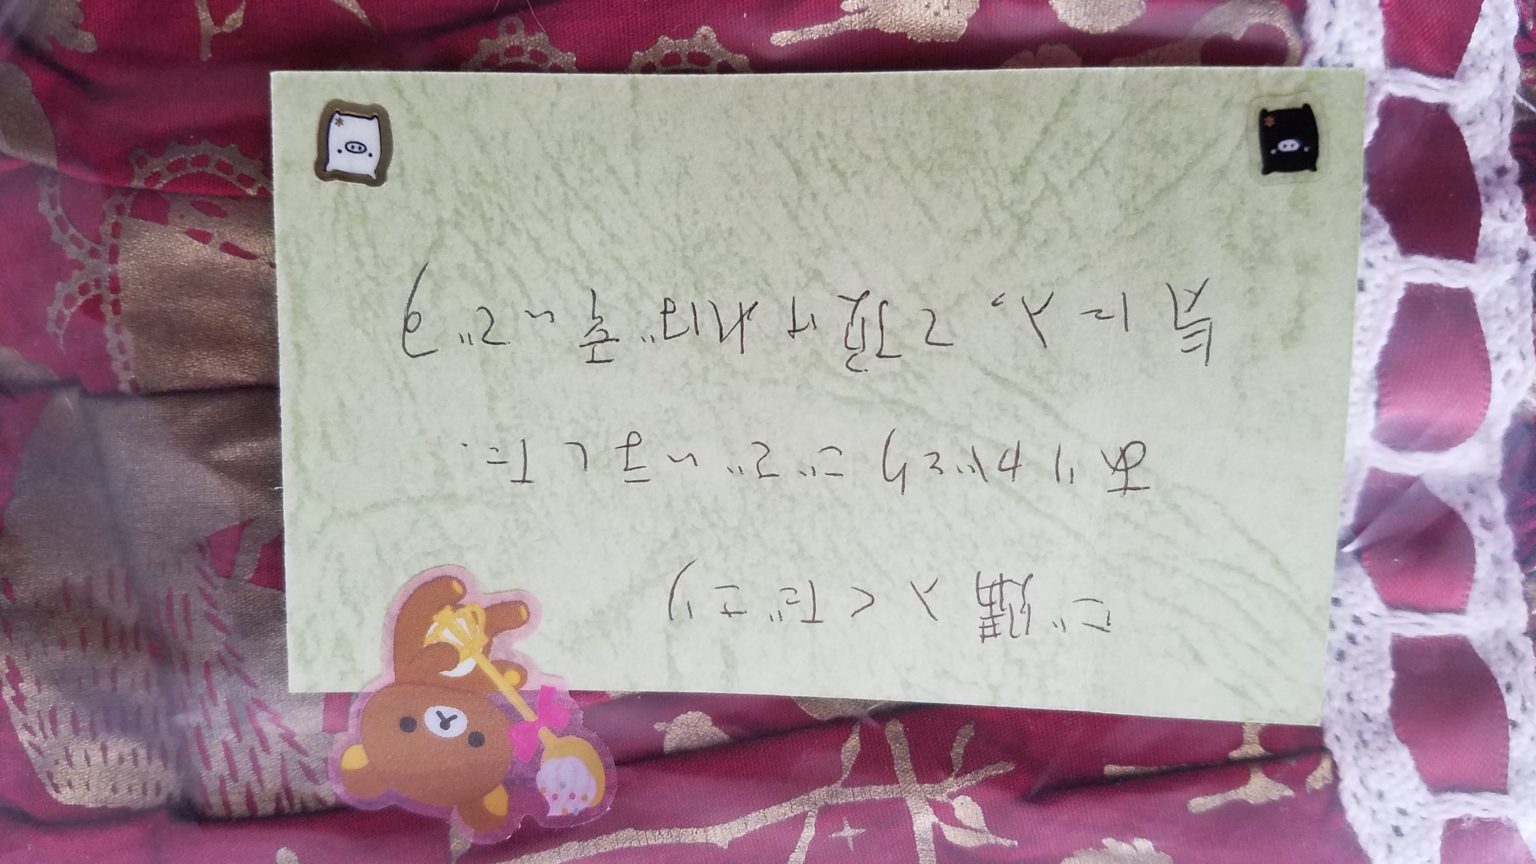 ご購入くださり
ありがとうございました.
気に入って頂ければ幸いです